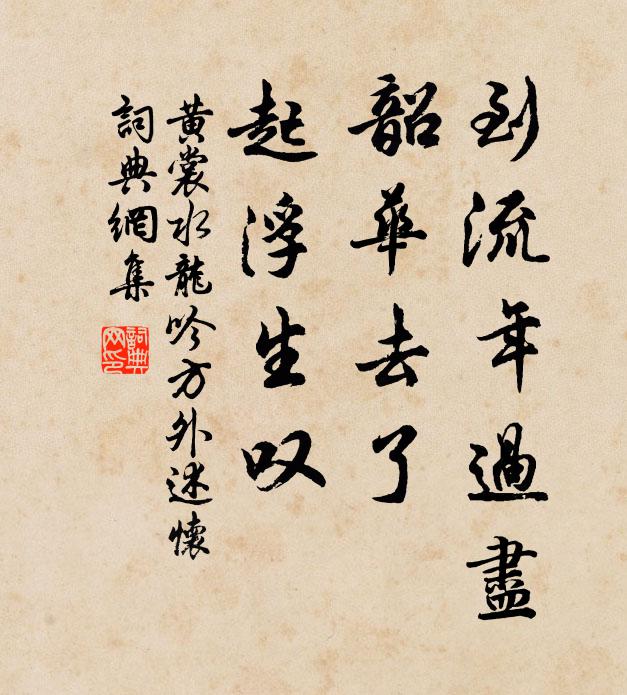 到流年過盡
韶華去了
起浮生叹
黄裳水龍吟方外述懷
詞典網集
詞典网印